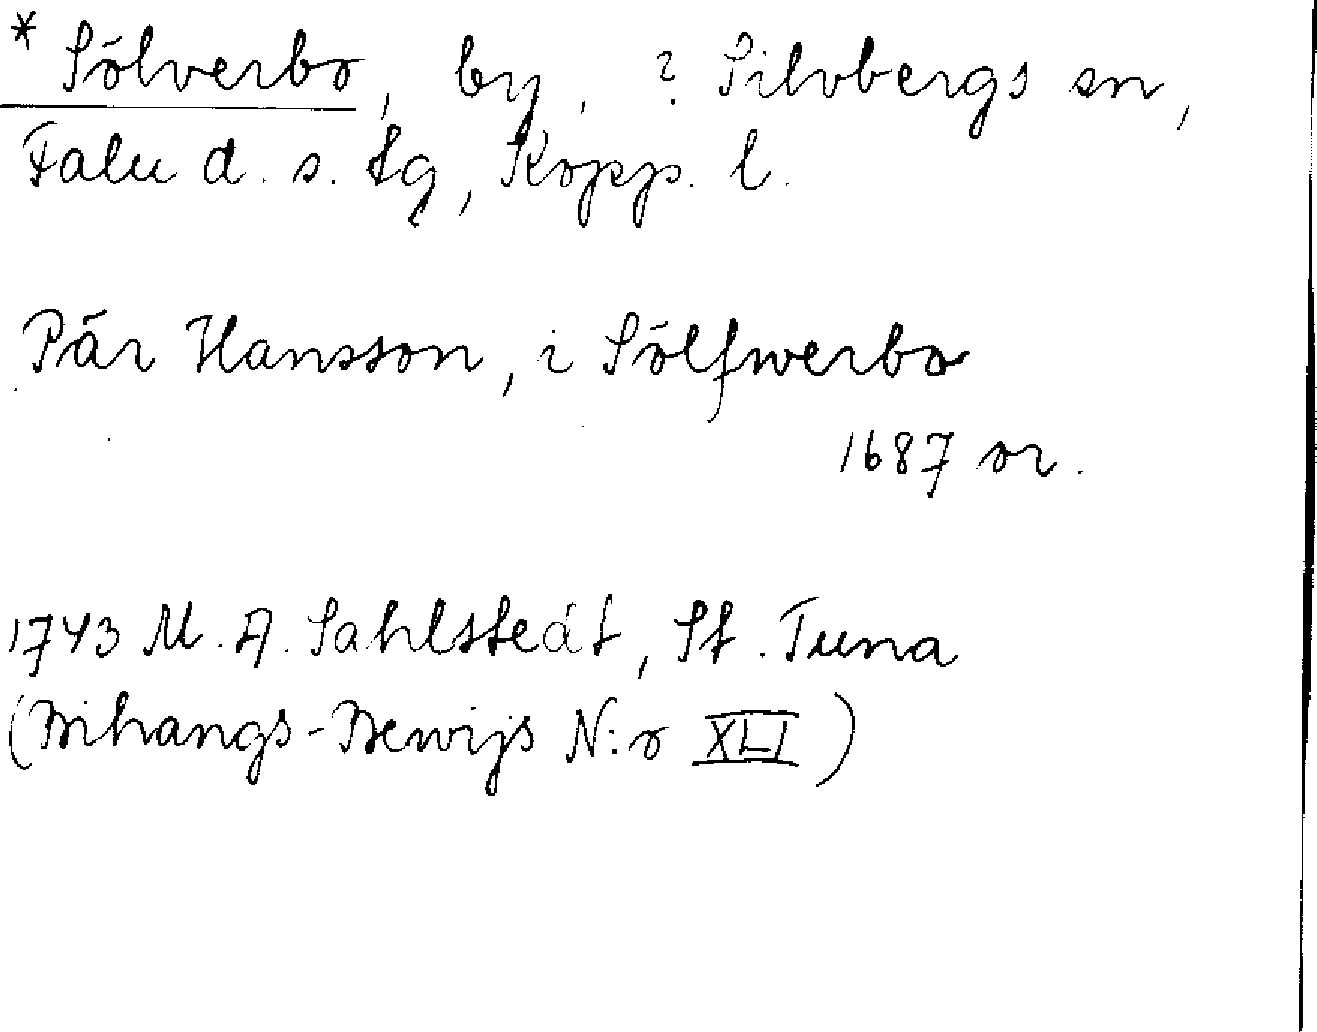 * Sölverbo, by, ? Silvbergs sn,
Falu d. s. tg, Kopp. l.
Pär Hansson, i Sölfwerbo
1687 or.
1743 M. A. Sahlstedt, St. Tuna
(Bihangs-Bewijs N:o XLI)